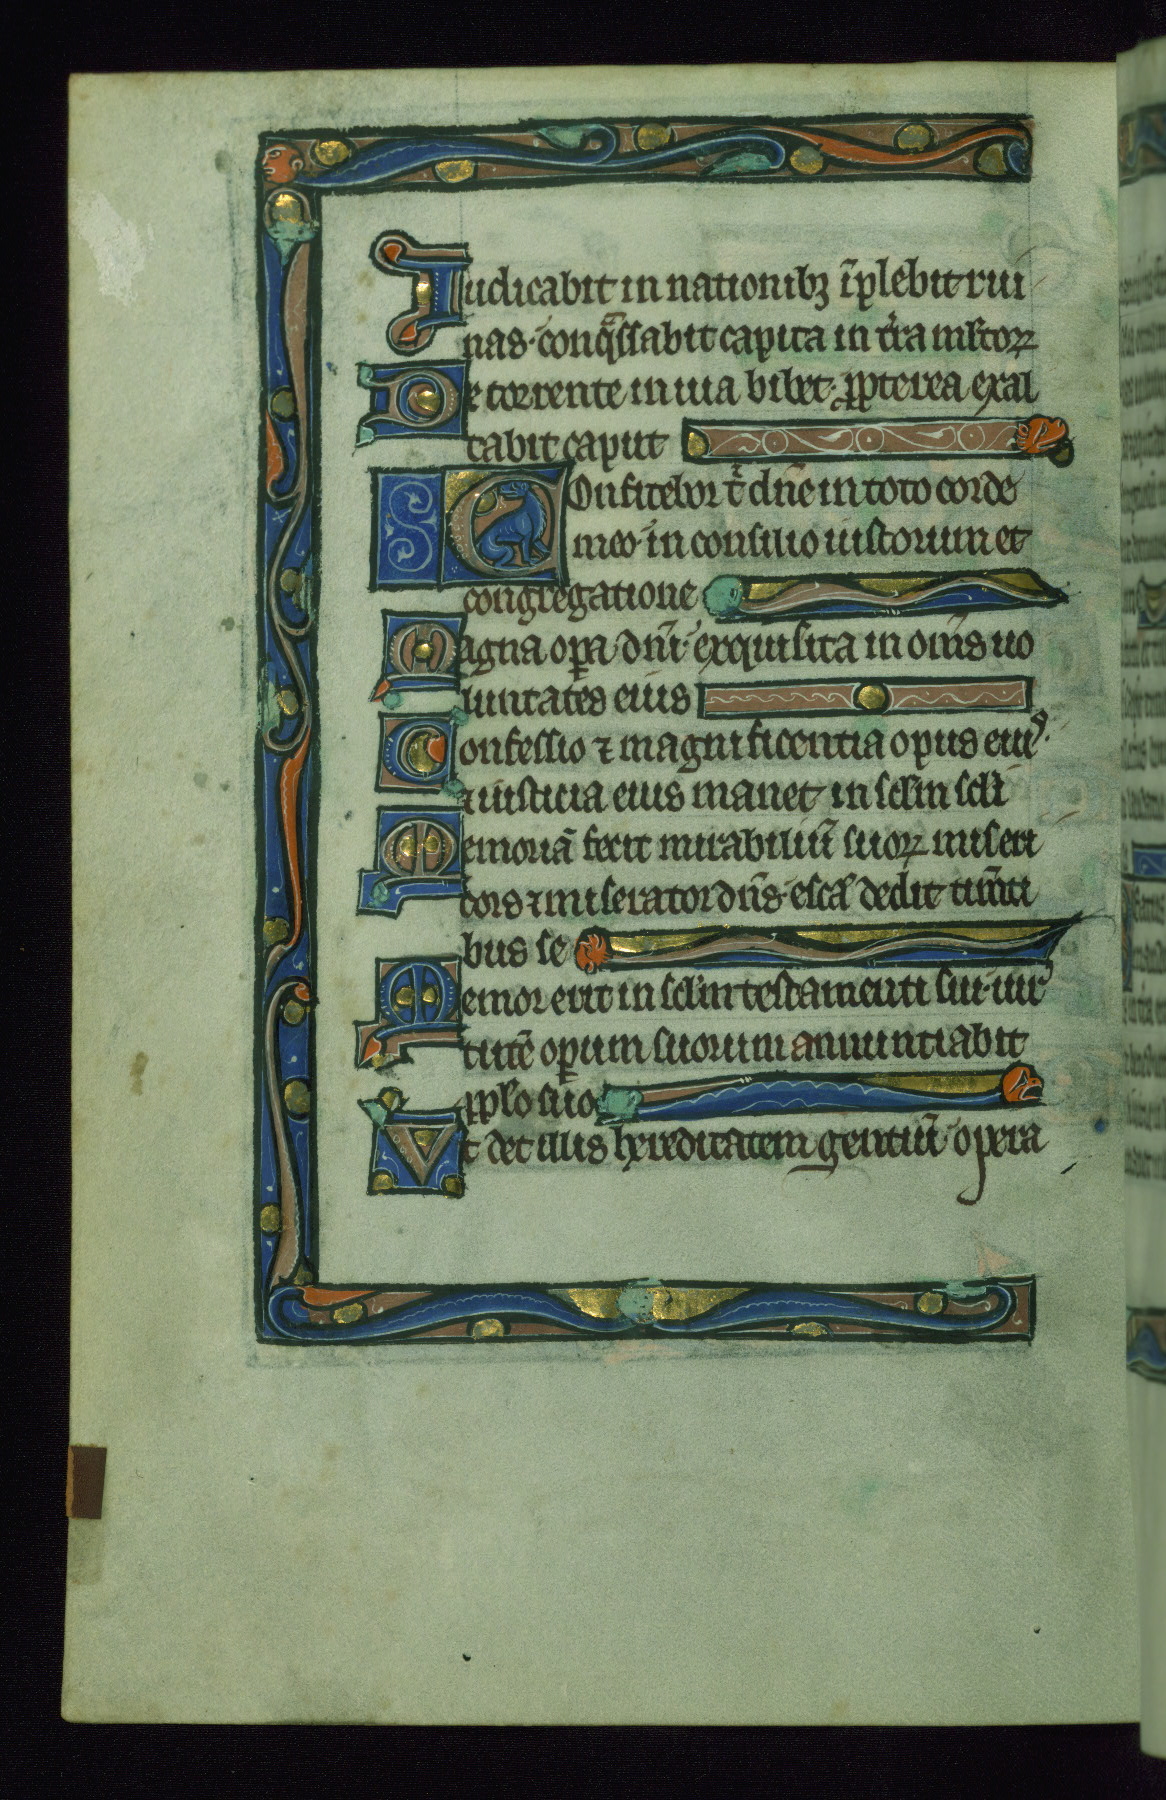 Iudicabit in nationibꝫ īplebit rui
nas· conqͣssabit capita in t̾ra ml̾toꝝ
De torrente in uia bibet· ꝓpterea exal
tabit caput
Confitebor t̾ dn̄e in toto corde
meo· in consilio iustorum et
congregatione
Magna oꝑa dn̄i· exquisita in om̄s uo
luntates eius
Confessio ⁊ magnificentia opus eiuˢ·
⁊ iusticia eius manet in sclm̄ scl̄i
Memoriā fecit mirabiliū suoꝝ miseri
cors ⁊ miserator dn̄s· escā dedit tim̄ti
bus se
Memor erit in sclm̄ testamenti sui· uir
tutē oꝑum suorum annuntiabit
pp̄lo suo
Vt det illis hereditatem gentiū· opera